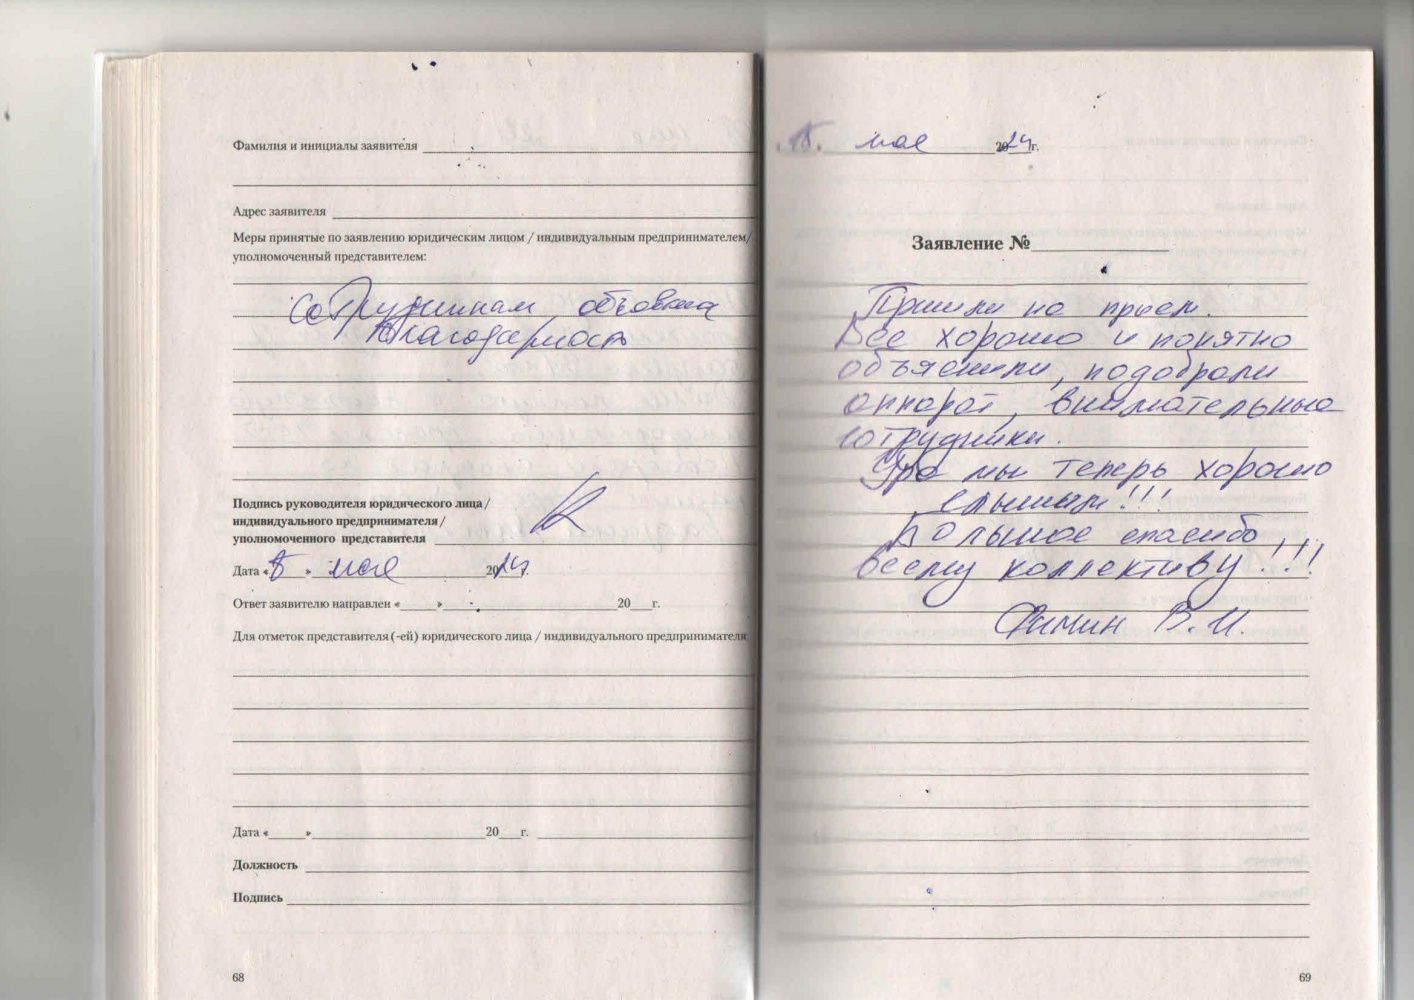 Фамилия и инициалы заявителя
Адрес заявителя
Меры принятые по заявлению юридическим лицом / индивидуальным предпринимателем/
уполномоченный представителем:
Сотрудникам объявлена
благодарность
Подпись руководителя юридического лица /
индивидуального предпринимателя /
уполномоченного представителя
Дата « » мая 2024г.
Ответ заявителю направлен « » 20 г.
Для отметок представителя (-ей) юридического лица / индивидуального предпринимателя
Дата « » 20 г.
Должность
Подпись
68
мая 2024г.
Заявление №
Пришли на прием.
Все хорошо и понятно
объяснили, подобрали
аппарат, внимательные
сотрудники.
Ура мы теперь хорошо
слышим!!!
Большое спасибо
всему коллективу!!!
В.И.
69